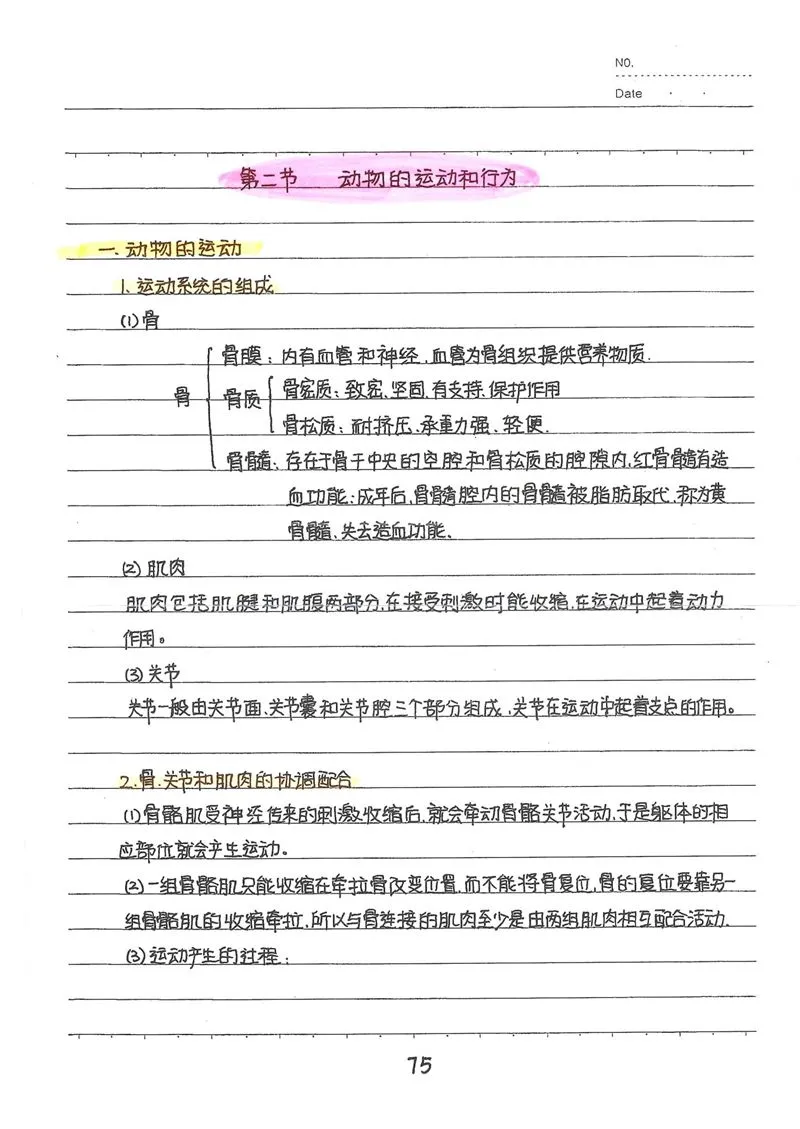 NO.
Date . .
第二节 动物的运动和行为
一.动物的运动
1.运动系统的组成
(1)骨
骨膜:内有血管和神经,血管为骨组织提供营养物质.
骨 骨质 骨密质:致密、坚固,有支持、保护作用
骨松质:耐挤压、承重力强、轻便.
骨骨髓:存在于骨干中央的空腔和骨松质的腔隙内,红骨骨髓有造
血功能;成年后,骨骨髓腔内的骨骨髓被脂肪取代,称为黄
骨骨髓,失去造血功能.
(2)肌肉
肌肉包括肌腱和肌腹两部分,在接受刺激时能收缩,在运动中起着动力
作用。
(3)关节
关节一般由关节面、关节囊和关节腔三个部分组成,关节在运动中起着支点的作用。
2.骨.关节和肌肉的协调配合
(1)骨骼肌受神经传来的刺激收缩后,就会牵动骨骼关节活动,于是躯体的相
应部位就会产生运动。
(2)一组骨骼肌只能收缩在牵拉骨改变位置,而不能将骨复位,骨的复位要靠另一
组骨骼肌的收缩牵拉,所以与骨连接的肌肉至少是由两组肌肉相互配合活动.
(3)运动产生的过程:
75